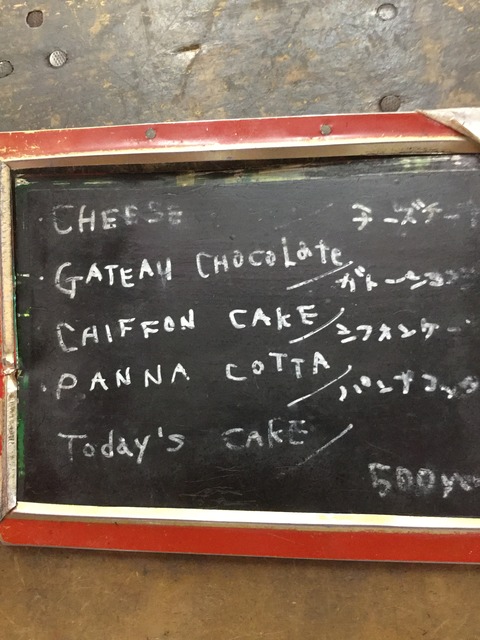 CHEESE チーズケー
GATEAU CHOCOLate ガトーショコ
CHIFFON CAKE シフォンケー
PANNA COTTA パンナコッ
Today's CAKE
500ye